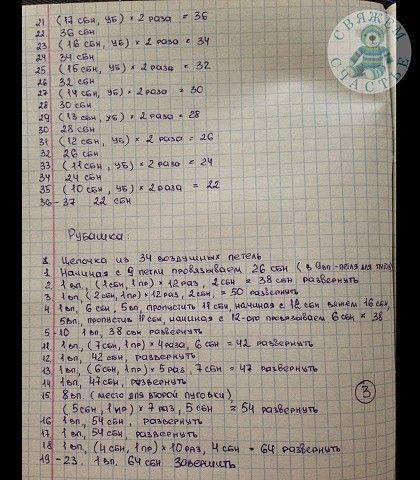 СВЯЖЕМ СЧАСТЬЕ
21 (17 сбн, уб) × 2 раза = 36
22 36 сбн
23 (16 сбн, уб) × 2 раза = 34
24 34 сбн
25 (15 сбн, уб) × 2 раза = 32
26 32 сбн
27 (14 сбн, уб) × 2 раза = 30
28 30 сбн
29 (13 сбн, уб) × 2 раза = 28
30 28 сбн
31 (12 сбн, уб) × 2 раза = 26
32 26 сбн
33 (11 сбн, уб) × 2 раза = 24
34 24 сбн
35 (10 сбн, уб) × 2 раза = 22
36-37 22 сбн
Рубашка:
Цепочка из 34 воздушных петель
1. Начиная с 9 петли провязываем 26 сбн (в 9вп - петля для
2. 1 вп, (1 сбн, 1 пр) × 12 раз, 2 сбн = 38 сбн развернуть
3. 1 вп, (2 сбн, 1 пр) × 12 раз, 2 сбн, = 50 развернуть
4. 1 вп, 6 сбн, 5 вп, пропустить 11 сбн, начиная с 12 сбн вяжем 16 сбн,
5 вп, пропустив 11 сбн, начиная с 12-ого провязываем 6 сбн = 38
5-10 1 вп, 38 сбн развернуть
11. 1 вп, (7 сбн, 1 пр) × 4 раза, 6 сбн = 42 развернуть
12. 1 вп, 42 сбн, развернуть
13. 1 вп, (6 сбн, 1 пр) × 5 раз, 7 сбн = 47 развернуть
14. 1 вп, 47 сбн, развернуть
15. 8 вп. (место для второй пуговки),
(5 сбн, 1 пр) × 7 раз, 5 сбн = 54 развернуть
16 1 вп, 54 сбн, развернуть
17 1 вп, 54 сбн, развернуть
18 1 вп, (4 сбн, 1 пр) × 10 раз, 4 сбн = 64 развернуть
19-23. 1 вп, 64 сбн Завершить
3